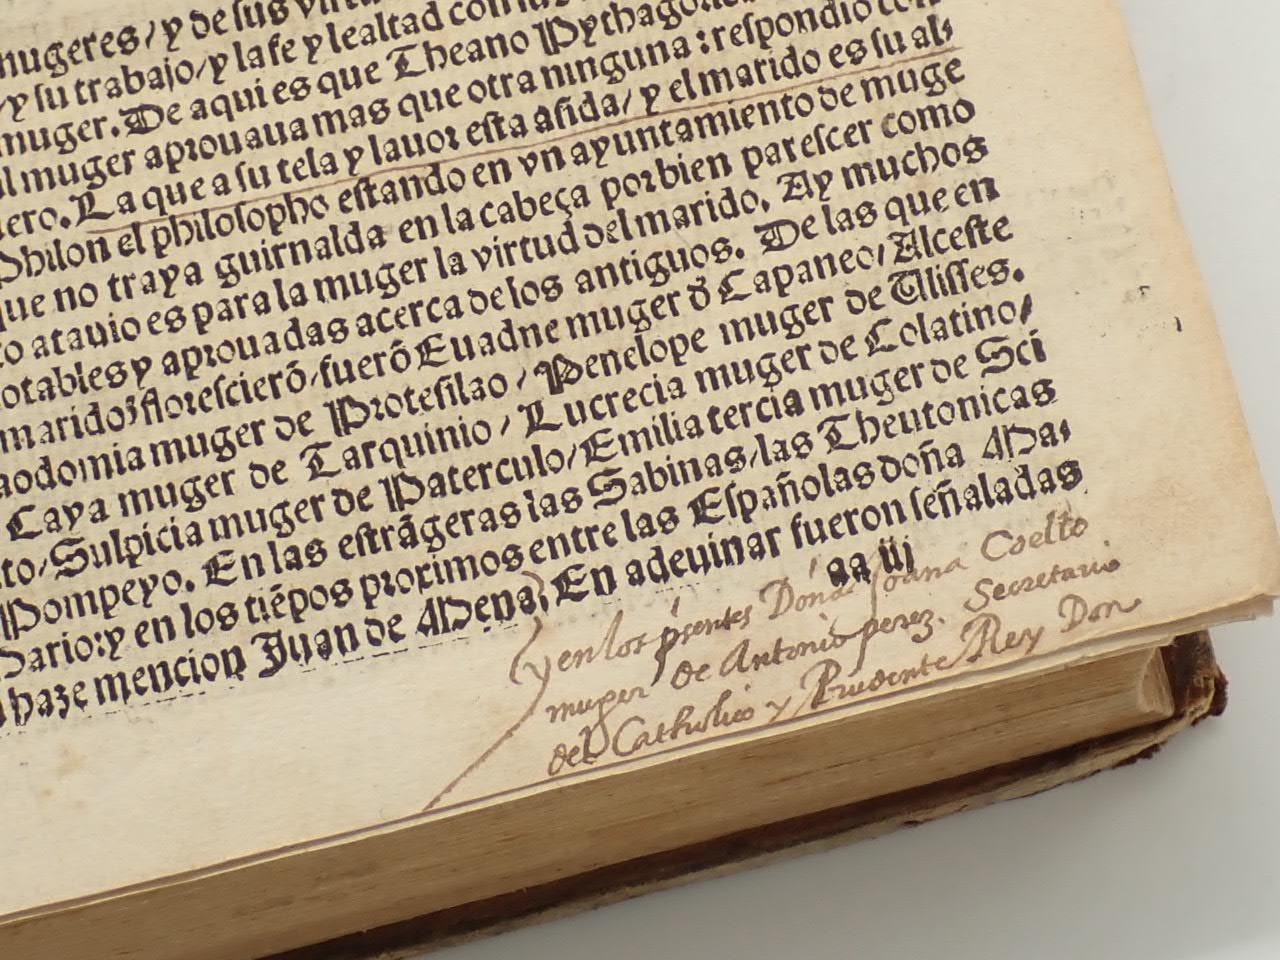 mugeres/y de sus
/y su trabajo/y la fe y lealtad con
muger. De aqui es que Theano Pythago
al muger aprouaua mas que otra ninguna: respondio con
ero. La que a su tela y lauor esta asida/y el marido es su al-
Philon el philosopho estando en vn ayuntamiento de muge
que no traya guirnalda en la cabeça por bien parescer como
to atauio es para la muger la virtud del marido. Ay muchos
otables y aprouadas acerca de los antiguos. De las que en
maridoȝ florescierõ/fuerõ Euadne muger đ Capaneo/Alceste
aodomia muger de Protesilao/Penelope muger de Ulisses.
Caya muger de Tarquinio/Lucrecia muger de Colatino/
to/Sulpicia muger de Paterculo/Emilia tercia muger de Sci
Pompeyo. En las estrãgeras las Sabinas/las Theutonicas
Dario: y en los tiẽpos proximos entre las Españolas doña Ma-
haze mencion Juan de Mena. En adeuinar fueron señaladas
aa iij
y en los p̃sentes Dona Joana Coello
muger de Antonio perez. Secretario
del Catholico y Prudente Rey Don